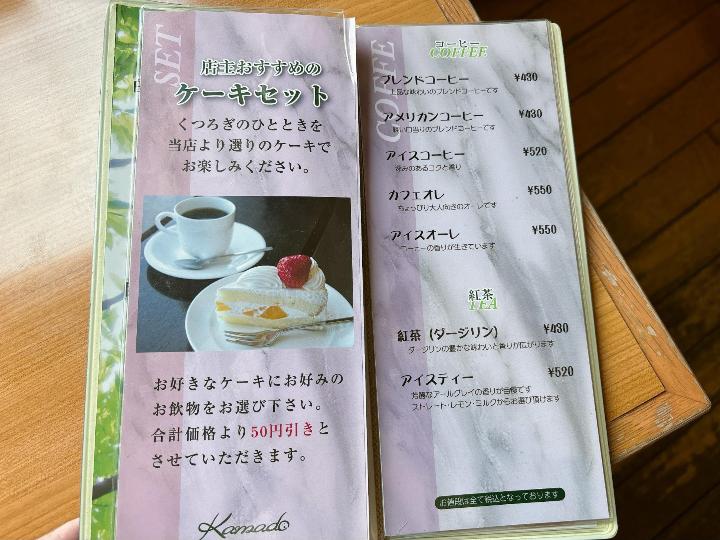 SET
店主おすすめの
ケーキセット
くつろぎのひとときを
当店より選りのケーキで
お楽しみください。
お好きなケーキにお好みの
お飲物をお選び下さい。
合計価格より50円引きと
させていただきます。
Kamado
COFFE
コーヒー
COFFEE
ブレンドコーヒー ¥430
上品な味わいのブレンドコーヒーです
アメリカンコーヒー ¥430
軽い口当りのブレンドコーヒーです
アイスコーヒー ¥520
深みのあるコクと香り
カフェオレ ¥550
ちょっぴり大人向きのオーレです
アイスオーレ ¥550
コーヒーの香りが生きています
紅茶
TEA
紅茶（ダージリン） ¥430
ダージリンの豊かな味わいと香りが広がります
アイスティー ¥520
芳醇なアールグレイの香りが自慢です
ストレート・レモン・ミルクからお選び頂けます
お値段は全て税込となっております